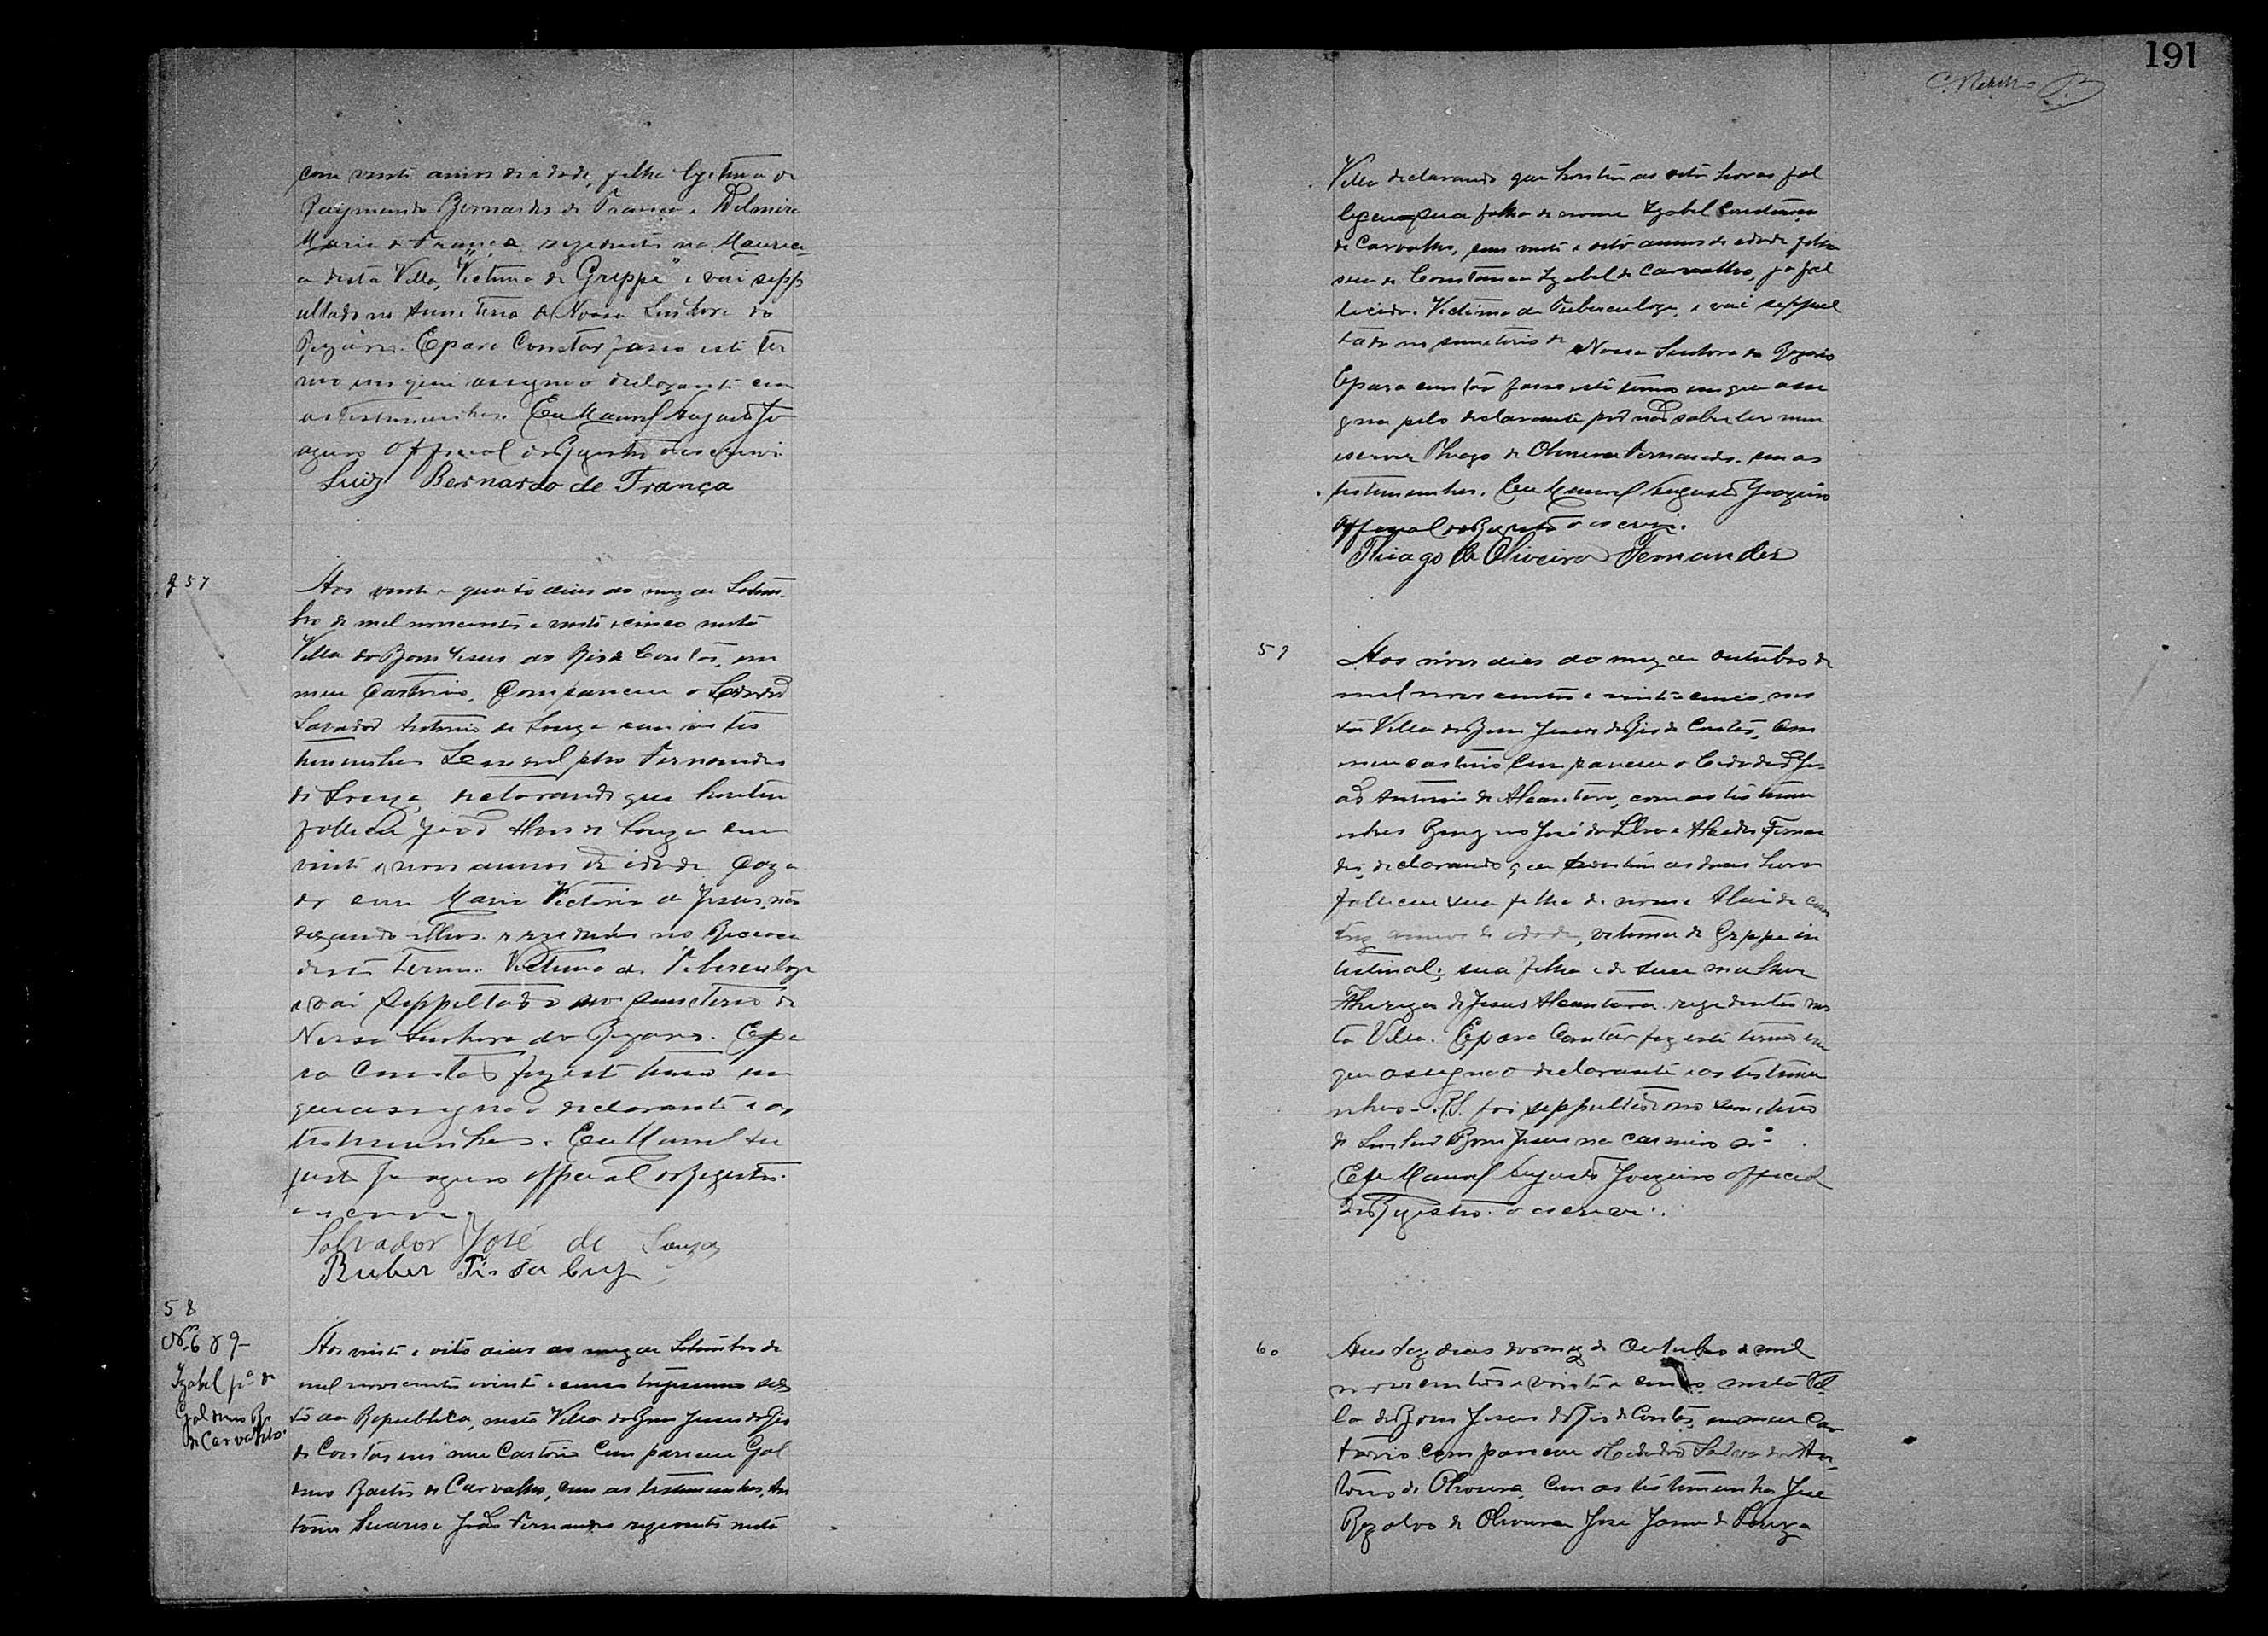 com vinte annos de idade, filho legitimo de
Raymundo Bernardes de França e Delmira
Maria de França residentes na
a desta Villa, Victima de "Grippe" e vai sepp
ultado no semeterio de Nossa Senhora do
Rozario. E para Constar faço este ter
mo em que assigna o declarante com
as testemunhas. Eu Manoel Augusto Jo
aquim Official do Registro o escrevi
Luiz Bernardo de França
57
Aos vinte e quatro dias do mez de Setem
bro de mil novecentos e vinte e cinco nesta
Villa do Bom Jesus do Rio de Contas, em
meu Cartorio, Compareceu o Cidadão
Salvador Antonio de Souza com as tes
temunhas Fernandes
de Souza, declarando que hontem
falleceu João Alves de Souza com
vinte e nove annos de idade Caza
do com Maria Victoria de Jesus, não
deixando filhos. rezidentes no
deste termo. Victima de Tuberculoze
e vai seppultado no semeterio de
Nossa Senhora do Rozario. E pa
ra Constar fiz este termo em
que assigna o declarante e as
testemunhas. Eu Manoel Au
gusto Joaquim official do Registro
o escrevi.
Salvador José de Souza
Ruber
58
Nº 689-
Izabel pª de
Galdino B.
de Carvalho.
Aos vinte e oito dias do mez de Setembro de
mil novecentos e vinte e cinco trigesimo sex
to da Republica, nesta Villa do Bom Jesus do Rio
de Contas em meu Cartorio Compareceu Gal
dino Bastos de Carvalho, com as testemunhas, An
tonio Soares e João Fernandes rezidente nesta
191
Villa declarando que hontem as oito horas fal
leceu sua filha de nome Izabel
de Carvalho, com vinte e oito annos de idade filha
sua e de Constancia Izabel de Carvalho, já fal
lecida. Victima de Tuberculoze, e vai seppul
tada no semeterio de Nossa Senhora do Rozario
E para constar faço este termo em que assi
gna pelo declarante por não saber ler nem
escrever Thiago de Oliveira Fernandes. com as
testemunhas. Eu Manoel Augusto Joaquim
official do Registro o escrevi.
Thiago de Oliveira Fernandes
59
Aos nove dias do mez de Outubro de
mil novecentos e vinte e cinco, nes
ta Villa do Bom Jesus do Rio de Contas, em
meu cartorio Compareceu o Cidadão Jo
ão Antonio de Alcantara, com as testemu
nhas José da Silva e Alcides Fernan
des, declarando que hontem as duas horas
falleceu sua filha de nome Alaide com
trez annos de idade, victima de Grippe in
testinal, sua filha e de sua mulher
Thereza de Jesus Alcantara rezidentes nes
ta Villa. E para Constar fiz este termo em
que assigna o declarante e as testemu
nhas. P.S. foi seppultado no semeterio
do Senhor Bom Jesus
Eu Manoel Augusto Joaquim official
do Registro o escrevi.
60
Aos dez dias do mez de Outubro de mil
novecentos e vinte e cinco nesta Vil
la do Bom Jesus do Rio de Contas, em meu Car
torio compareceu o Cidadão Salvador An
tonio de Oliveira, com as testemunhas José
de Oliveira José de Souza